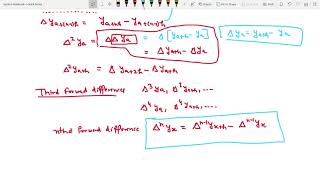 Δy_{a+(n-1)h} = y_{a+nh} - y_{a+(n-1)h}
Δ² y_a = Δ Δ y_a = Δ [y_{a+h} - y_a] Δ y_a = y_{a+h} - y_a
= Δ y_{a+h} - Δ y_a
Δ² y_{a+h} = Δ y_{a+2h} - Δ y_{a+h}
Third forward difference Δ³ y_a, Δ³ y_{a+h}, ....
Δ⁴ y_a, Δ⁴ y_{a+h}, ....
nth forward difference Δⁿ y_x = Δⁿ⁻¹ y_{x+h} - Δⁿ⁻¹ y_x